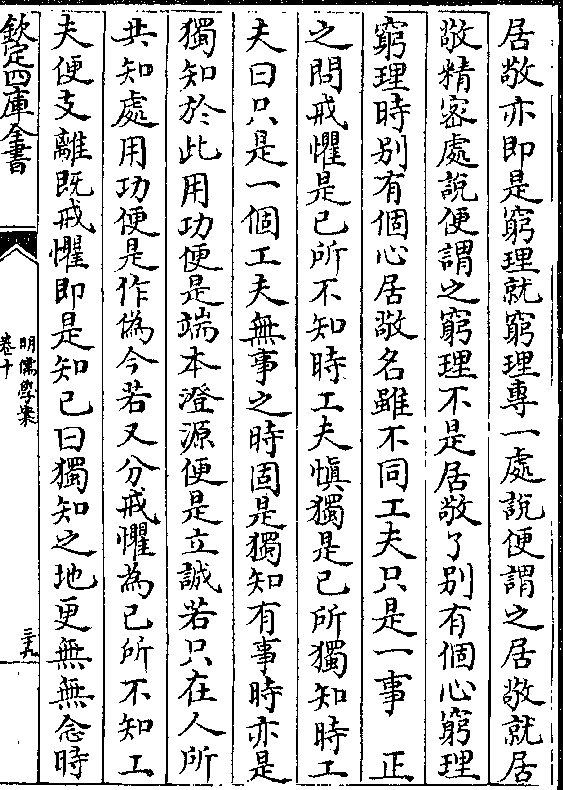 居敬亦即是窮理就窮理專一處說便謂之居敬就居
敬精密處說便謂之窮理不是居敬了别有個心窮理
窮理時别有個心居敬名雖不同工夫只是一事　正
之問戒懼是已所不知時工夫慎獨是已所獨知時工
夫曰只是一個工夫無事之時固是獨知有事時亦是
獨知於此用功便是端本澄源便是立誠若只在人所
共知處用功便是作偽今若又分戒懼為已所不知工
夫便支離既戒懼即是知已曰獨知之地更無無念時
欽定四庫全書
明儒學案
卷十
三九